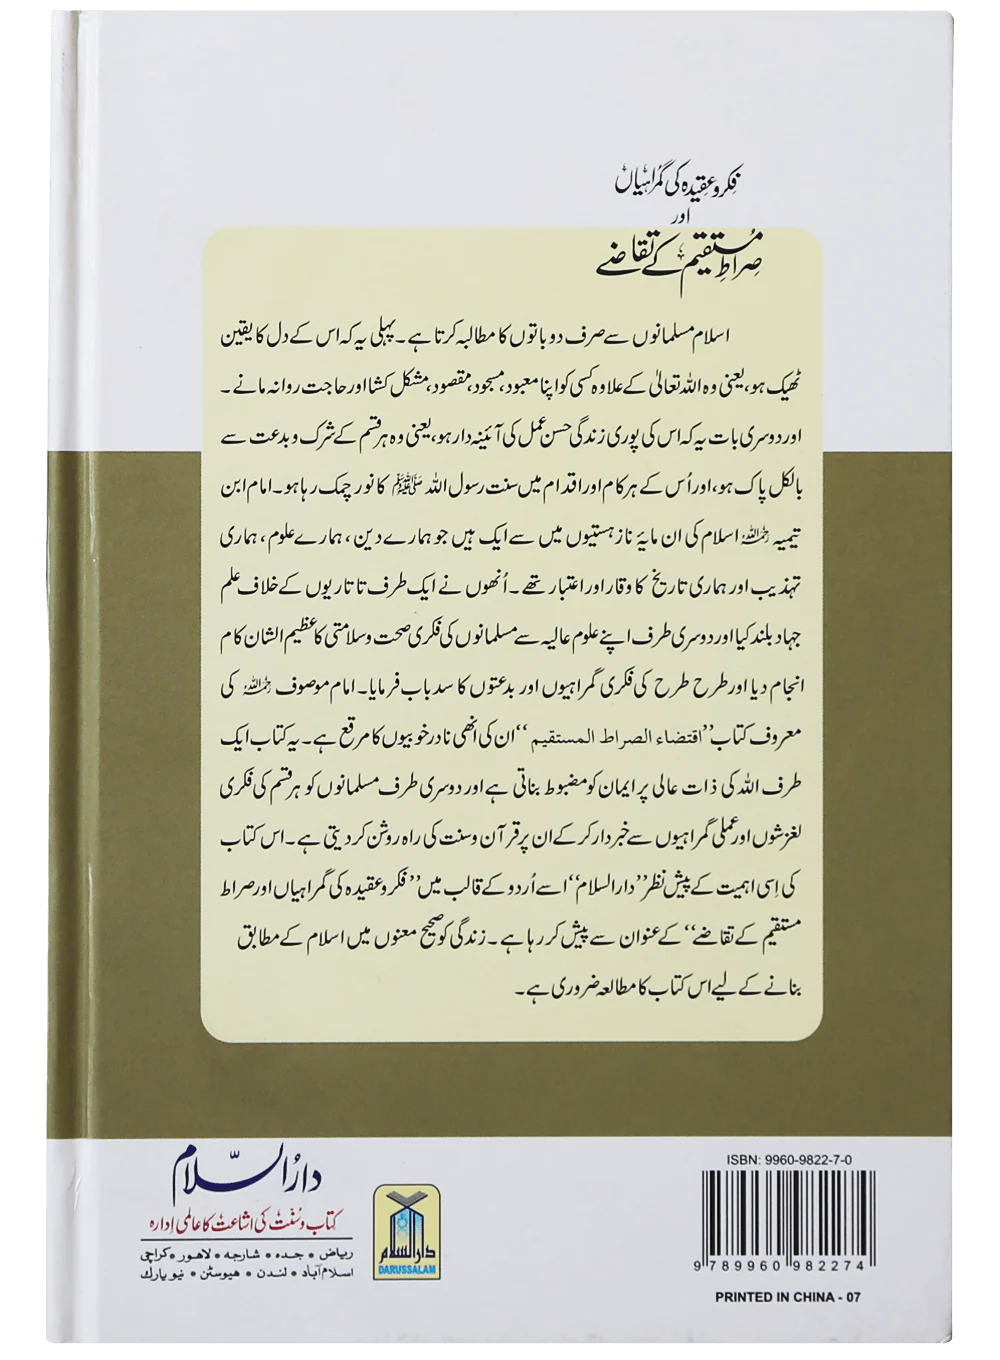 فکر و عقیدہ کی گمراہیاں
اور
صراطِ مستقیم کے تقاضے
اسلام مسلمانوں سے صرف دو باتوں کا مطالبہ کرتا ہے۔ پہلی یہ کہ اس کے دل کا یقین
ٹھیک ہو، یعنی وہ اللہ تعالیٰ کے علاوہ کسی کو اپنا معبود، مسجود، مقصود، مشکل کشا اور حاجت روا نہ مانے۔
اور دوسری بات یہ کہ اس کی پوری زندگی حسن عمل کی آئینہ دار ہو، یعنی وہ ہر قسم کے شرک و بدعت سے
بالکل پاک ہو، اور اُس کے ہر کام اور اقدام میں سنت رسول اللہ ﷺ کا نور چمک رہا ہو۔ امام ابن
تیمیہ رحمہ اللہ اسلام کی ان مایۂ ناز ہستیوں میں سے ایک ہیں جو ہمارے دین، ہمارے علوم، ہماری
تہذیب اور ہماری تاریخ کا وقار اور اعتبار تھے۔ اُنھوں نے ایک طرف تاتاریوں کے خلاف علم
جہاد بلند کیا اور دوسری طرف اپنے علوم عالیہ سے مسلمانوں کی فکری صحت و سلامتی کا عظیم الشان کام
انجام دیا اور طرح طرح کی فکری گمراہیوں اور بدعتوں کا سدباب فرمایا۔ امام موصوف رحمہ اللہ کی
معروف کتاب ’’اقتضاء الصراط المستقیم‘‘ ان کی انھی نادر خوبیوں کا مرقع ہے۔ یہ کتاب ایک
طرف اللہ کی ذات عالی پر ایمان کو مضبوط بناتی ہے اور دوسری طرف مسلمانوں کو ہر قسم کی فکری
لغزشوں اور عملی گمراہیوں سے خبردار کر کے ان پر قرآن و سنت کی راہ روشن کر دیتی ہے۔ اس کتاب
کی اِسی اہمیت کے پیش نظر ’’دارالسلام‘‘ اسے اُردو کے قالب میں ’’فکر و عقیدہ کی گمراہیاں اور صراط
مستقیم کے تقاضے‘‘ کے عنوان سے پیش کر رہا ہے۔ زندگی کو صحیح معنوں میں اسلام کے مطابق
بنانے کے لیے اس کتاب کا مطالعہ ضروری ہے۔
دارُالسّلام
کتاب و سنت کی اشاعت کا عالمی ادارہ
ریاض • جدہ • شارجہ • لاہور • کراچی
اسلام آباد • لندن • ہیوسٹن • نیو یارک
دارالسلام
DARUSSALAM
ISBN: 9960-9822-7-0
9 789960 982274
PRINTED IN CHINA - 07